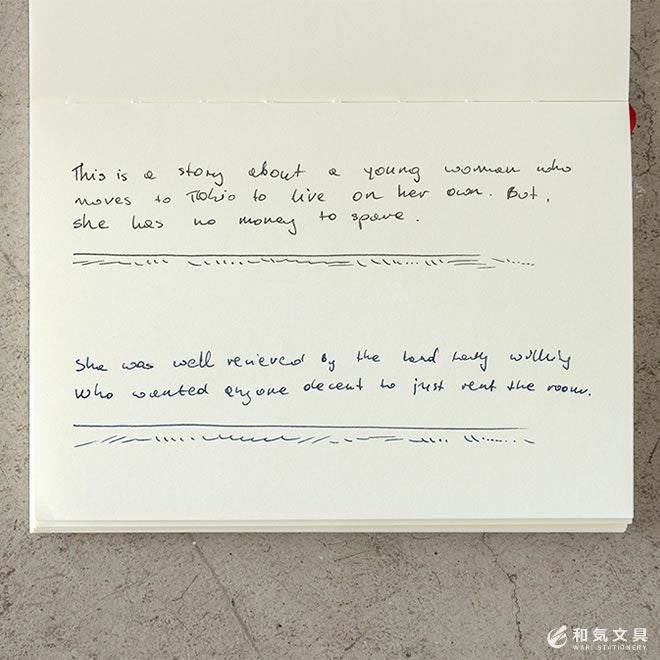 This is a story about a young woman who
moves to Tokio to live on her own. But,
she has no money to spare.
She was well recieved by the land lady
who wanted anyone decent to just rent the room.
和気文具
WAKI STATIONERY